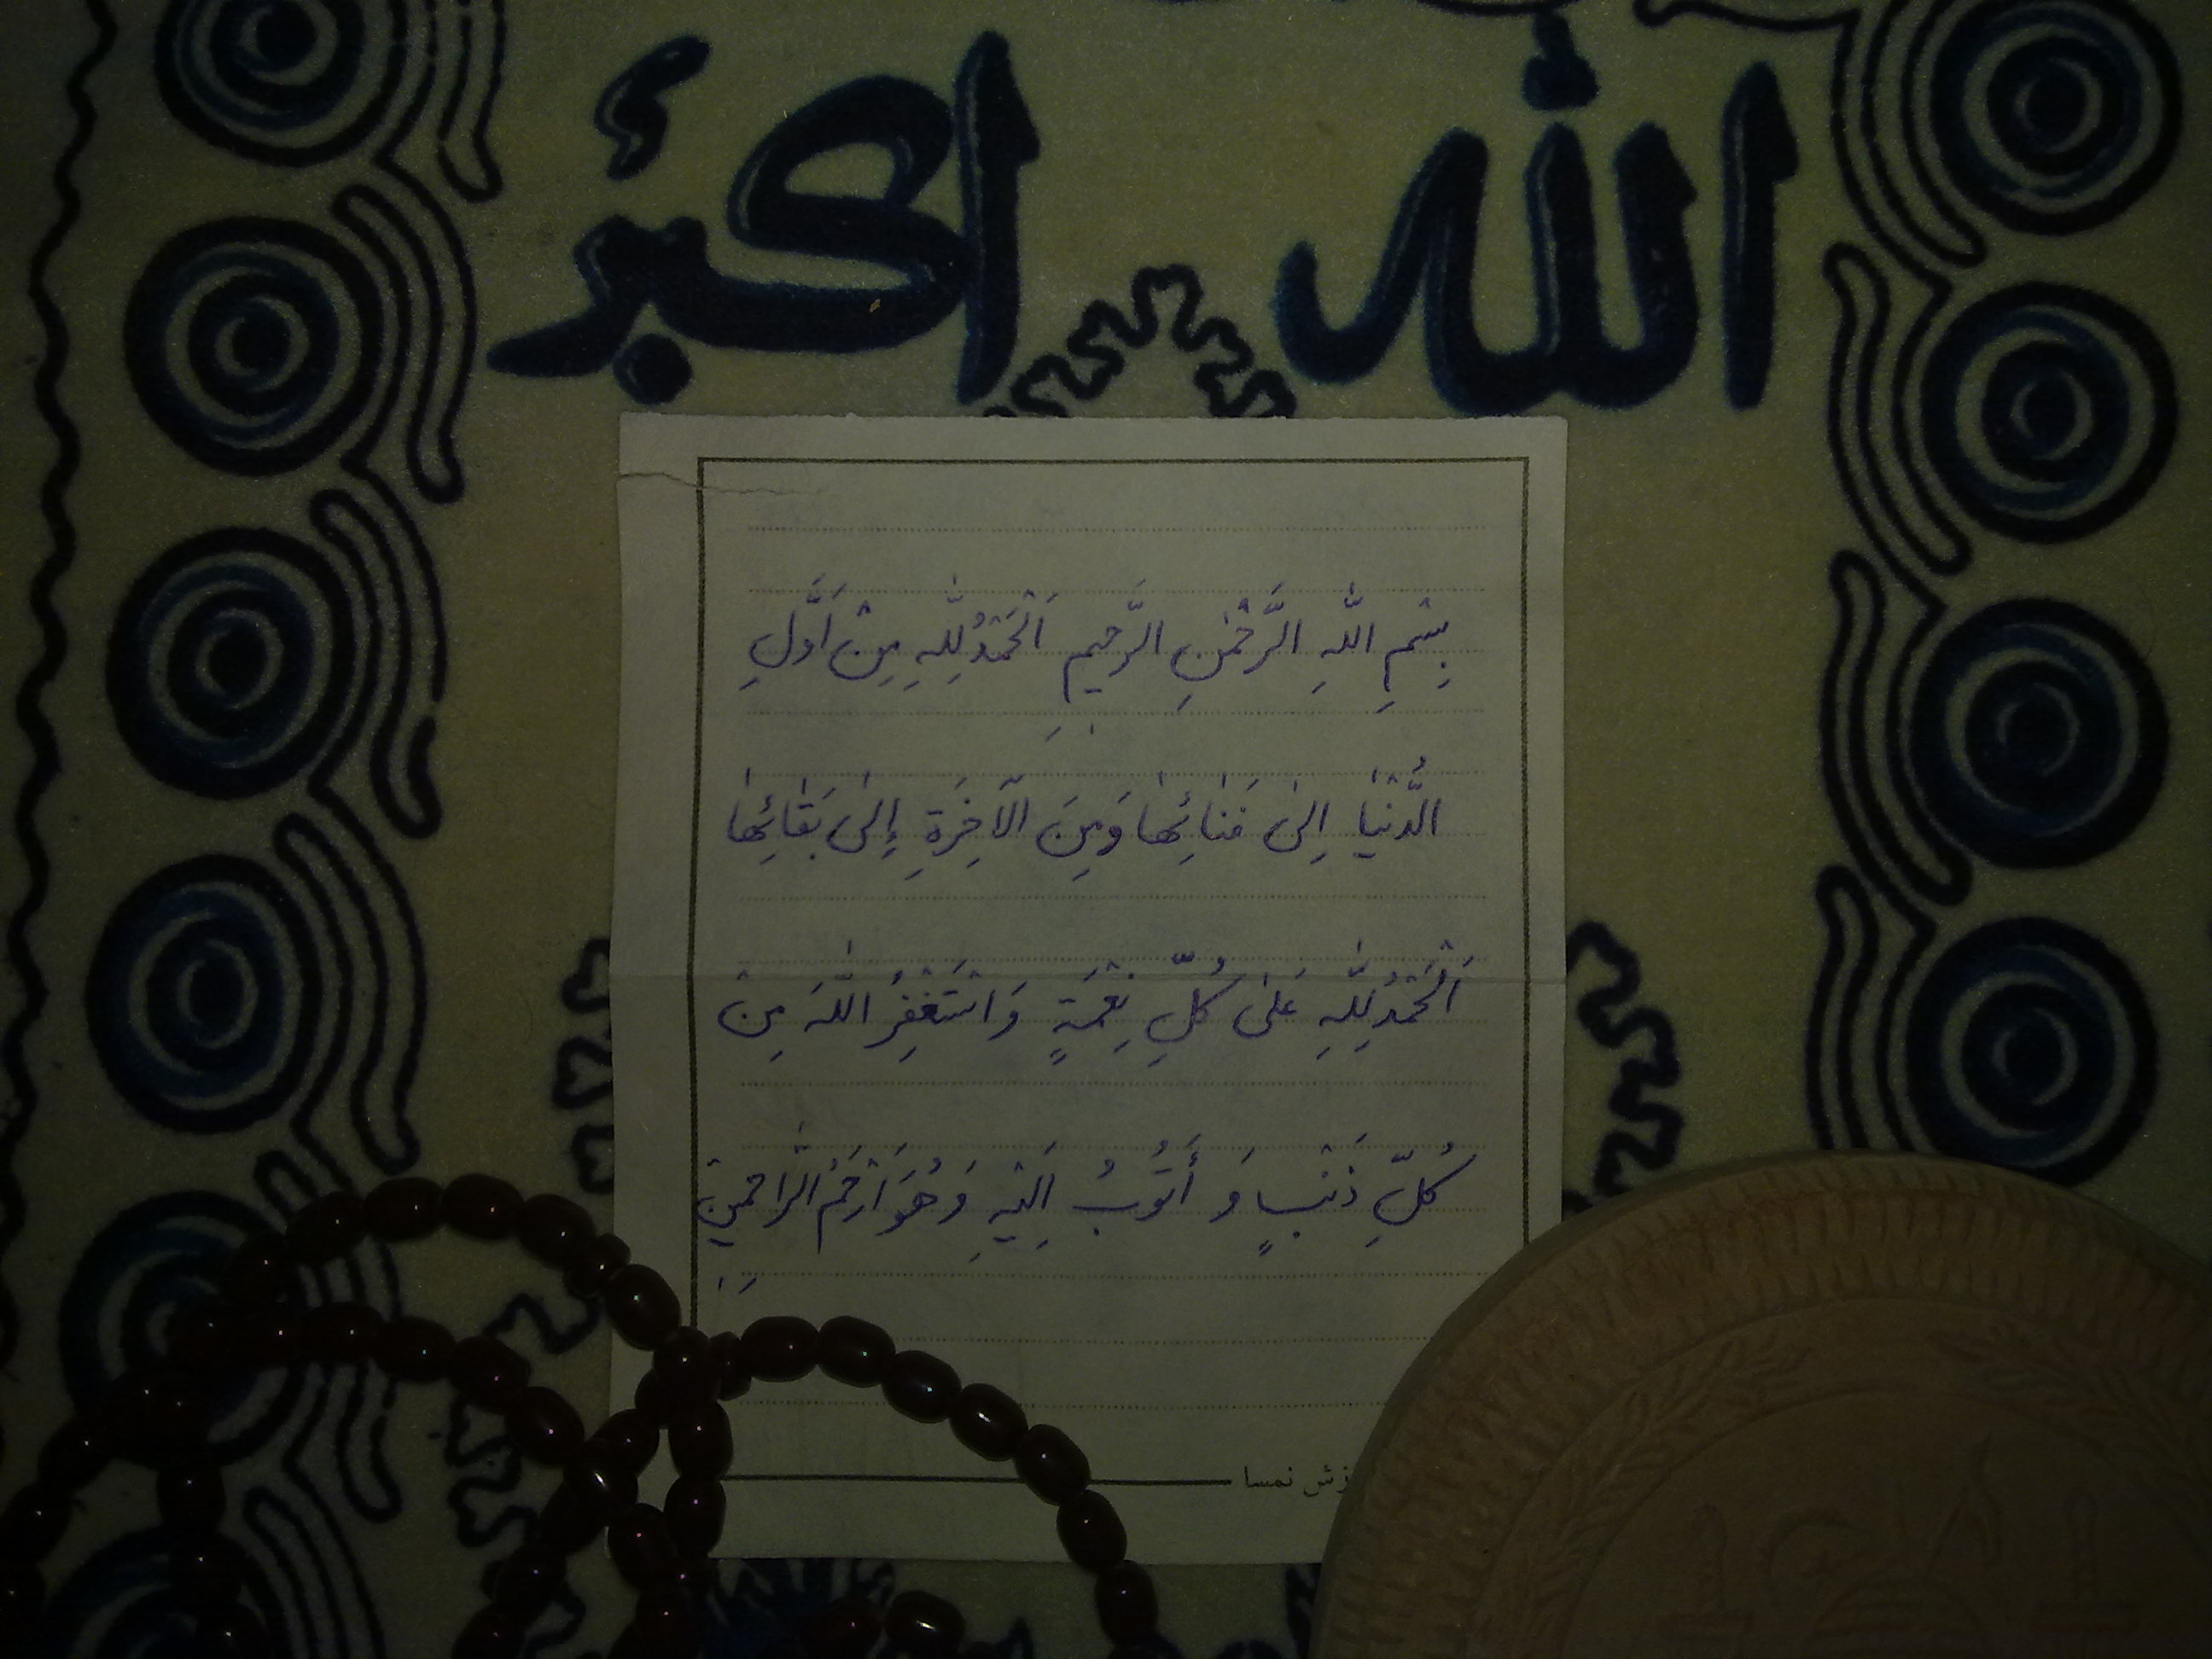 الله اکبر
بِسْمِ اللّٰهِ الرَّحْمٰنِ الرَّحیمِ اَلْحَمْدُلِلّٰهِ مِنْ اَوَّلِ
الدُّنْیٰا اِلیٰ فَنٰائِهٰا وَمِنَ الْآخِرَةِ إِلیٰ بَقٰائِهٰا
اَلْحَمْدُلِلّٰهِ عَلیٰ کُلِّ نِعْمَةٍ وَ اسْتَغْفِرُ اللّٰهَ مِنْ
کُلِّ ذَنْبٍ وَ أَتُوبُ اِلَیْهِ وَ هُوَ اَرْحَمُ الرّٰاحِمینَ
نمسا